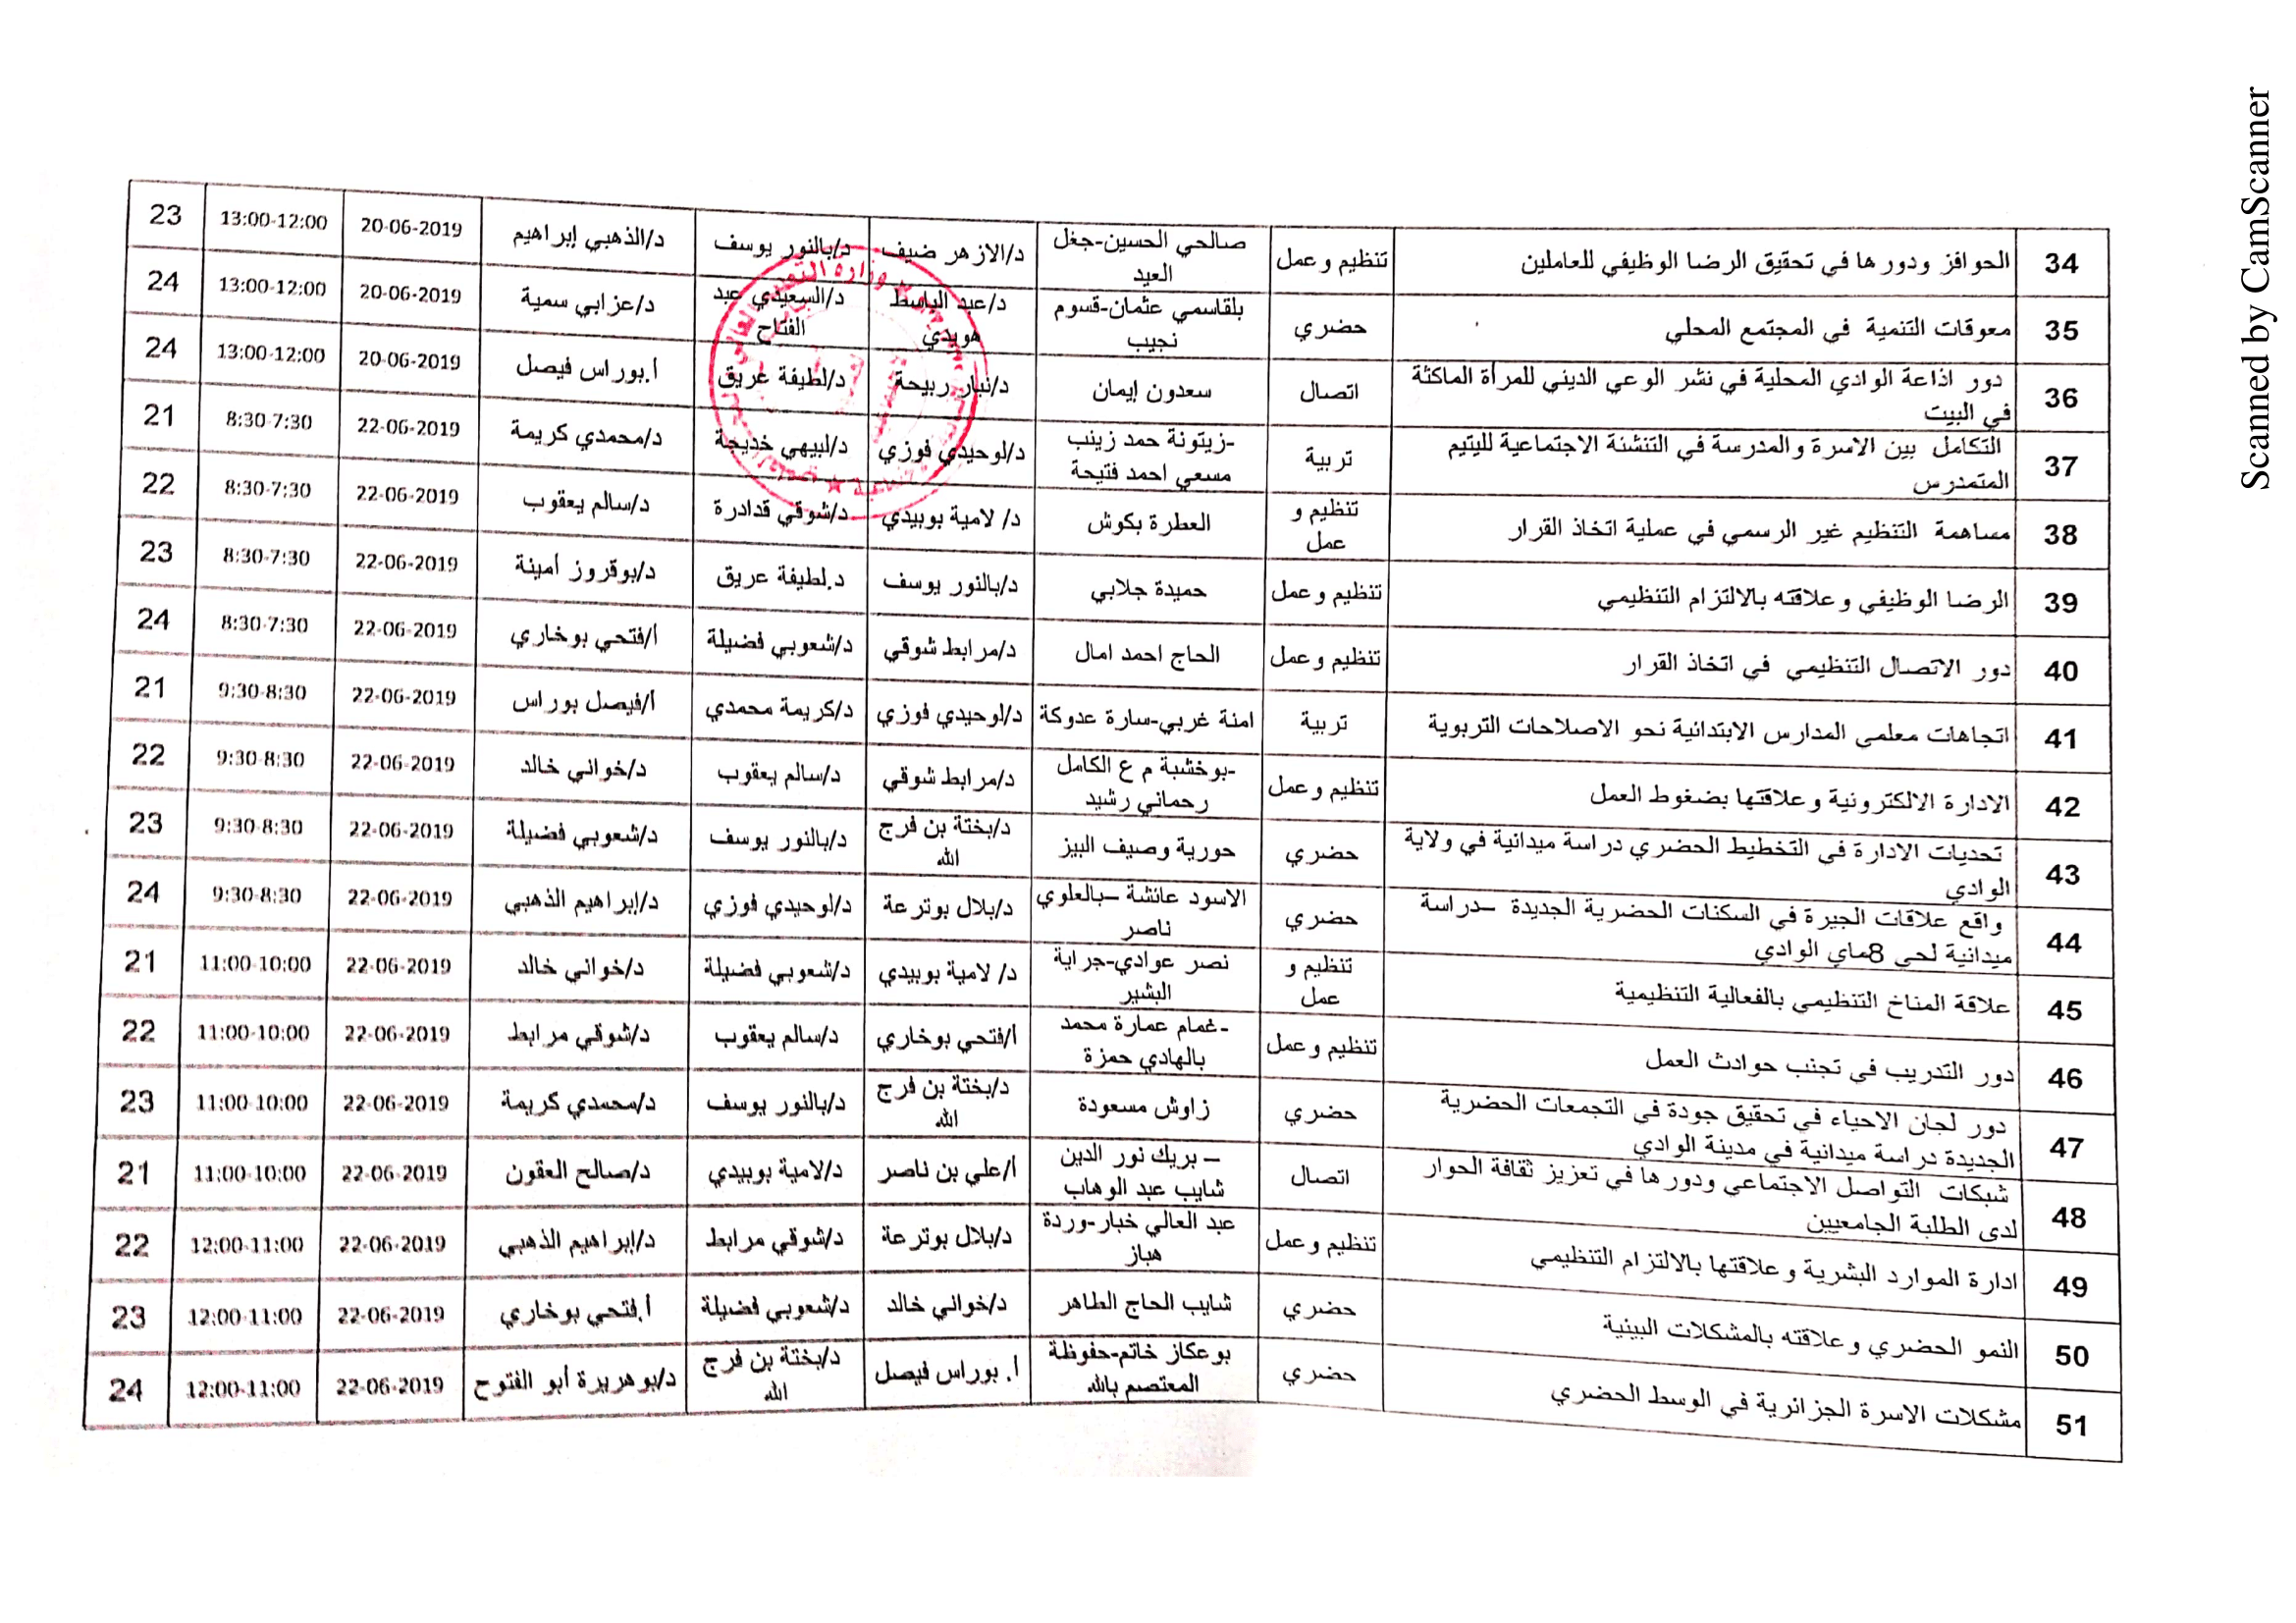 34 الحوافز ودورها في تحقيق الرضا الوظيفي للعاملين تنظيم وعمل صالحي الحسين-جغل د/الازهر ضيف د/بالنور يوسف د/الذهبي إبراهيم 20-06-2019 13:00-12:00 23
العيد
35 معوقات التنمية في المجتمع المحلي حضري بلقاسمي عثمان-قسوم د/عبد الباسط د/السعيدي عبد د/عزابي سمية 20-06-2019 13:00-12:00 24
نجيب هويدي الفتاح
36 دور اذاعة الوادي المحلية في نشر الوعي الديني للمرأة الماكثة اتصال سعدون إيمان د/نبار ربيحة د/لطيفة عريق أ.بوراس فيصل 20-06-2019 13:00-12:00 24
في البيت
37 التكامل بين الاسرة والمدرسة في التنشئة الاجتماعية لليتيم تربية زيتونة حمد زينب- د/لوحيدي فوزي د/لبيهي خديجة د/محمدي كريمة 22-06-2019 8:30-7:30 21
المتمدرس مسعي احمد فتيحة
38 مساهمة التنظيم غير الرسمي في عملية اتخاذ القرار تنظيم و العطرة بكوش د/ لامية بوبيدي د/شوقي قدادرة د/سالم يعقوب 22-06-2019 8:30-7:30 22
عمل
39 الرضا الوظيفي وعلاقته بالالتزام التنظيمي تنظيم وعمل حميدة جلابي د/بالنور يوسف د.لطيفة عريق د/بوقروز أمينة 22-06-2019 8:30-7:30 23
40 دور الاتصال التنظيمي في اتخاذ القرار تنظيم وعمل الحاج احمد امال د/مرابط شوقي د/شعوبي فضيلة أ/فتحي بوخاري 22-06-2019 8:30-7:30 24
41 اتجاهات معلمي المدارس الابتدائية نحو الاصلاحات التربوية تربية امنة غربي-سارة عدوكة د/لوحيدي فوزي د/كريمة محمدي أ/فيصل بوراس 22-06-2019 9:30-8:30 21
42 الادارة الالكترونية وعلاقتها بضغوط العمل تنظيم وعمل بوخشبة م ع الكامل- د/مرابط شوقي د/سالم يعقوب د/خواني خالد 22-06-2019 9:30-8:30 22
رحماني رشيد
43 تحديات الادارة في التخطيط الحضري دراسة ميدانية في ولاية حضري حورية وصيف البيز د/بختة بن فرج د/بالنور يوسف د/شعوبي فضيلة 22-06-2019 9:30-8:30 23
الوادي الله
44 واقع علاقات الجيرة في السكنات الحضرية الجديدة –دراسة حضري الاسود عائشة –بالعلوي د/بلال بوترعة د/لوحيدي فوزي د/إبراهيم الذهبي 22-06-2019 9:30-8:30 24
ميدانية لحي 8ماي الوادي ناصر
45 علاقة المناخ التنظيمي بالفعالية التنظيمية تنظيم و نصر عوادي-جراية د/ لامية بوبيدي د/شعوبي فضيلة د/خواني خالد 22-06-2019 11:00-10:00 21
عمل البشير
46 دور التدريب في تجنب حوادث العمل تنظيم وعمل غمام عمارة محمد- أ/فتحي بوخاري د/سالم يعقوب د/شوقي مرابط 22-06-2019 11:00-10:00 22
بالهادي حمزة
47 دور لجان الاحياء في تحقيق جودة في التجمعات الحضرية حضري زاوش مسعودة د/بختة بن فرج د/بالنور يوسف د/محمدي كريمة 22-06-2019 11:00-10:00 23
الجديدة دراسة ميدانية في مدينة الوادي الله
48 شبكات التواصل الاجتماعي ودورها في تعزيز ثقافة الحوار اتصال بريك نور الدين – أ/علي بن ناصر د/لامية بوبيدي د/صالح العقون 22-06-2019 11:00-10:00 21
لدى الطلبة الجامعيين شايب عبد الوهاب
49 ادارة الموارد البشرية وعلاقتها بالالتزام التنظيمي تنظيم وعمل عبد العالي خبار-وردة د/بلال بوترعة د/شوقي مرابط د/إبراهيم الذهبي 22-06-2019 12:00-11:00 22
هباز
50 النمو الحضري وعلاقته بالمشكلات البيئية حضري شايب الحاج الطاهر د/خواني خالد د/شعوبي فضيلة أ.فتحي بوخاري 22-06-2019 12:00-11:00 23
51 مشكلات الاسرة الجزائرية في الوسط الحضري حضري بوعكاز خاتم-حفوظة أ. بوراس فيصل د/بختة بن فرج د/بوهريرة أبو الفتوح 22-06-2019 12:00-11:00 24
المعتصم بالله الله
Scanned by CamScanner